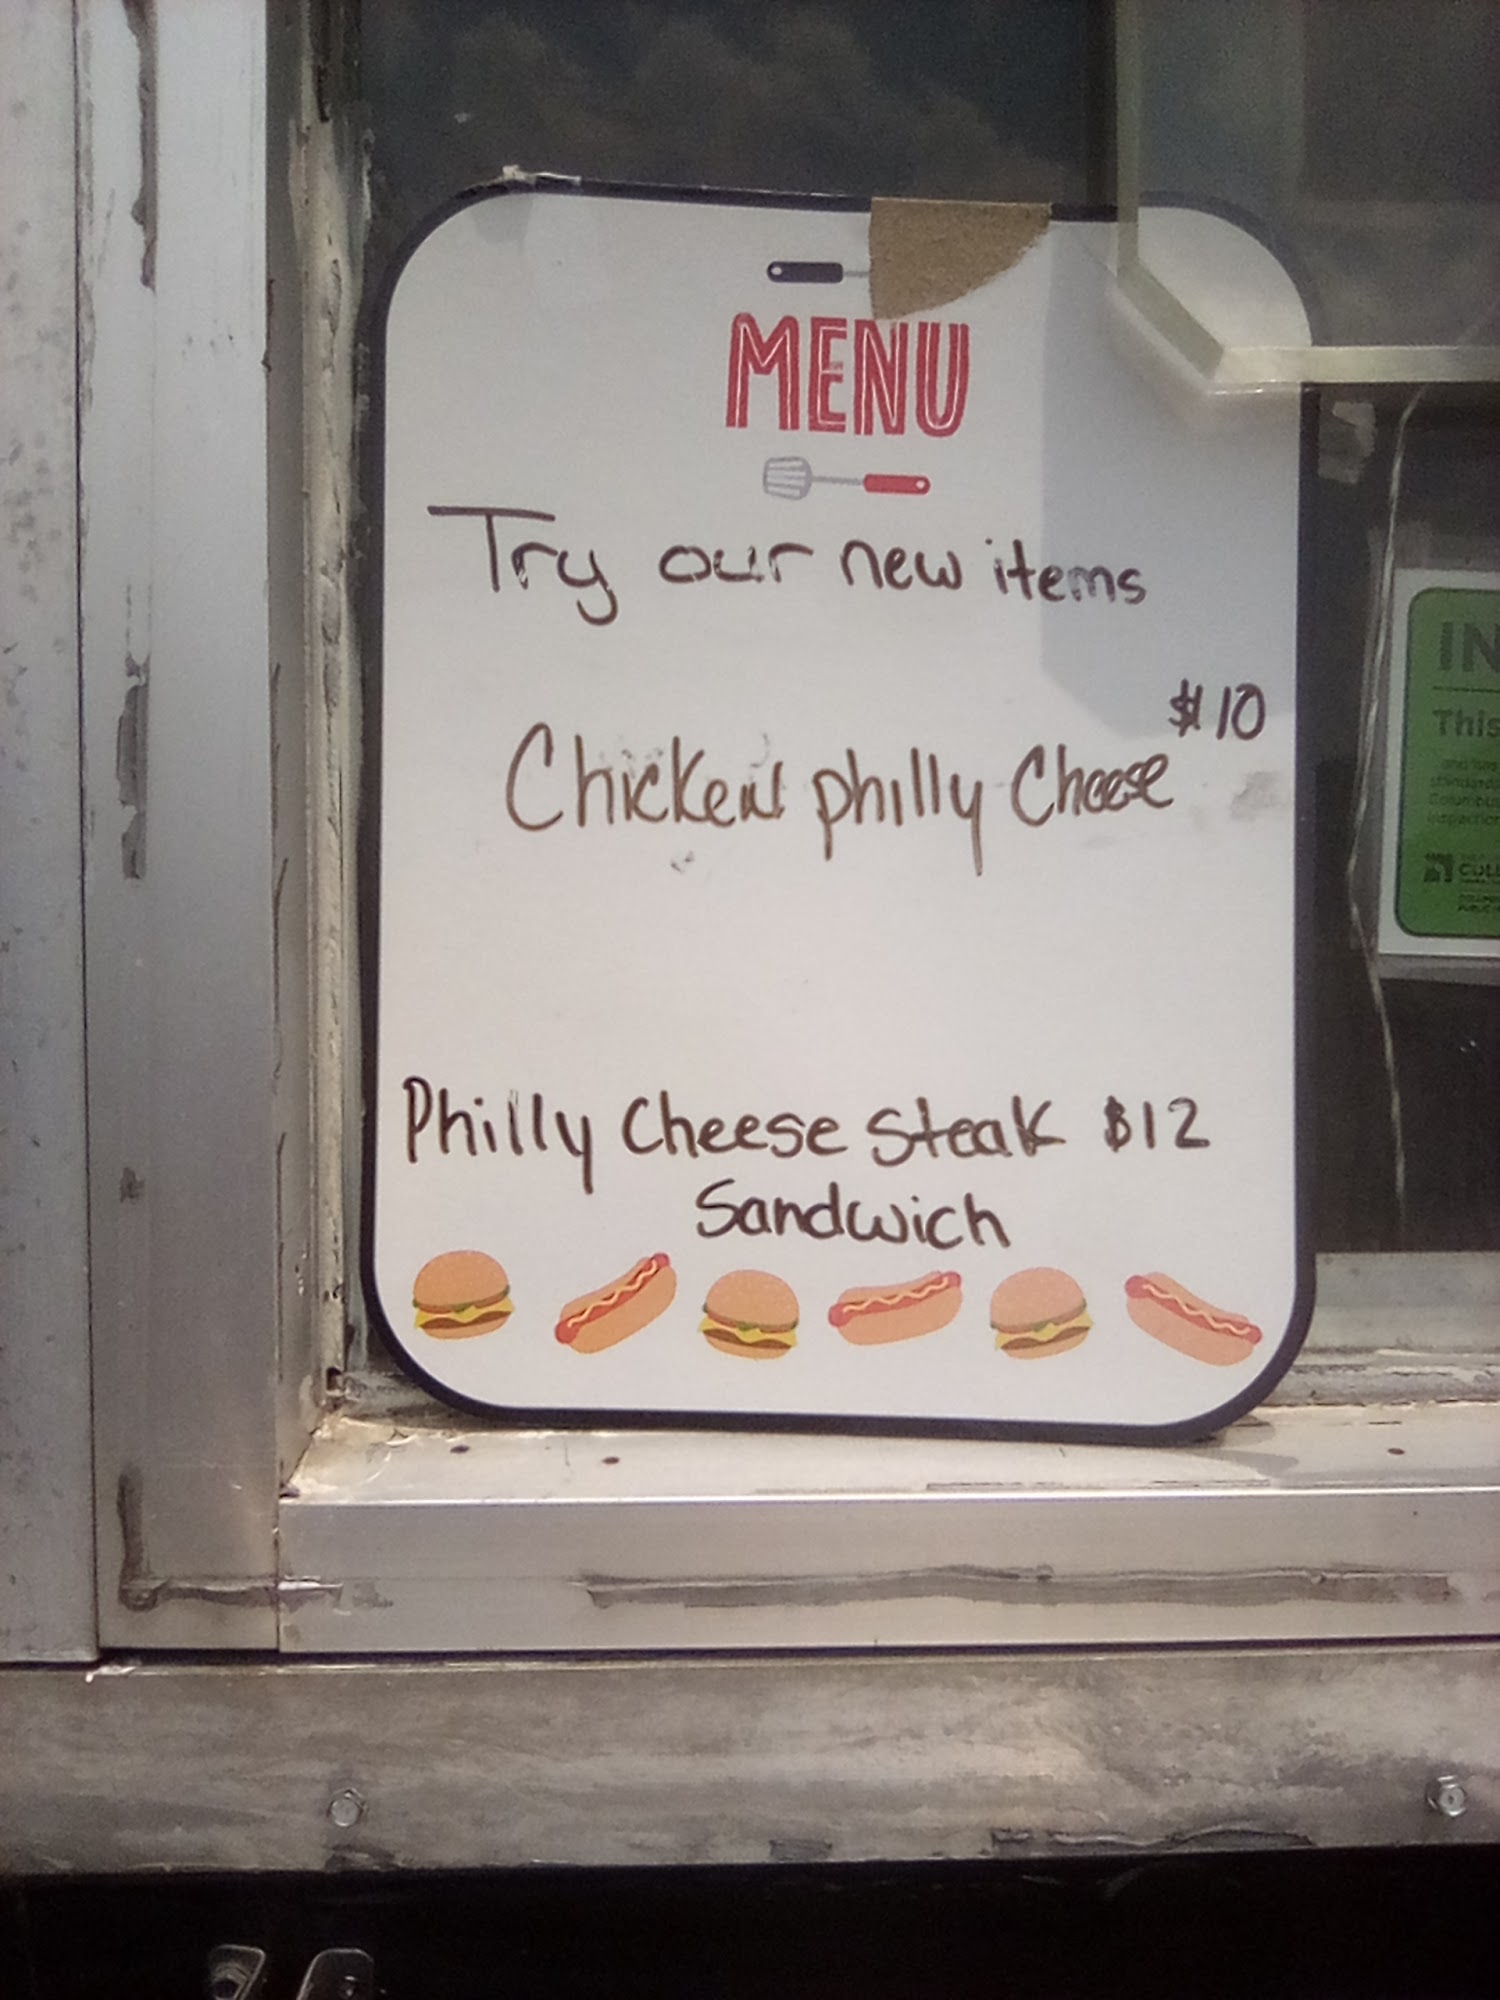 MENU
Try our new items
$10
Chicken philly Cheese
Philly Cheese Steak $12
Sandwich
IN
This